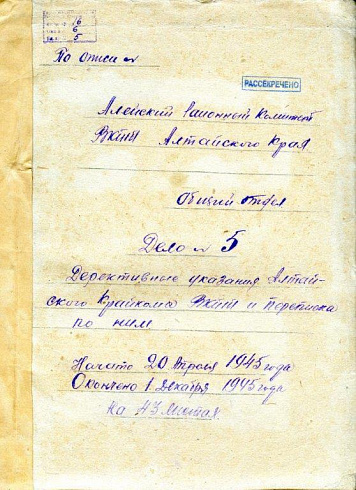 16
6
5
По описи №
РАССЕКРЕЧЕНО
Алейский Районный Комитет
ВКП(б) Алтайского Края
Общий отдел
Дело № 5
Дерективные указания Алтай-
ского Крайкома ВКП(б) и переписка
по ним
Начато 20 Апреля 1945 года
Окончено 1 Декабря 1945 года
На 43 листах